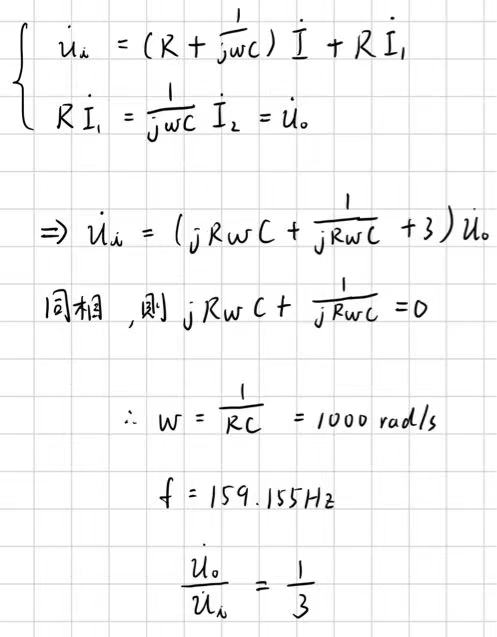 u̇ᵢ = (R + 1/(jwC)) İ + R İ₁
R İ₁ = 1/(jwC) İ₂ = u̇₀
⇒ u̇ᵢ = (jRwC + 1/(jRwC) + 3) u̇₀
同相, 则 jRwC + 1/(jRwC) = 0
∴ w = 1/(RC) = 1000 rad/s
f = 159.155Hz
u̇₀/u̇ᵢ = 1/3